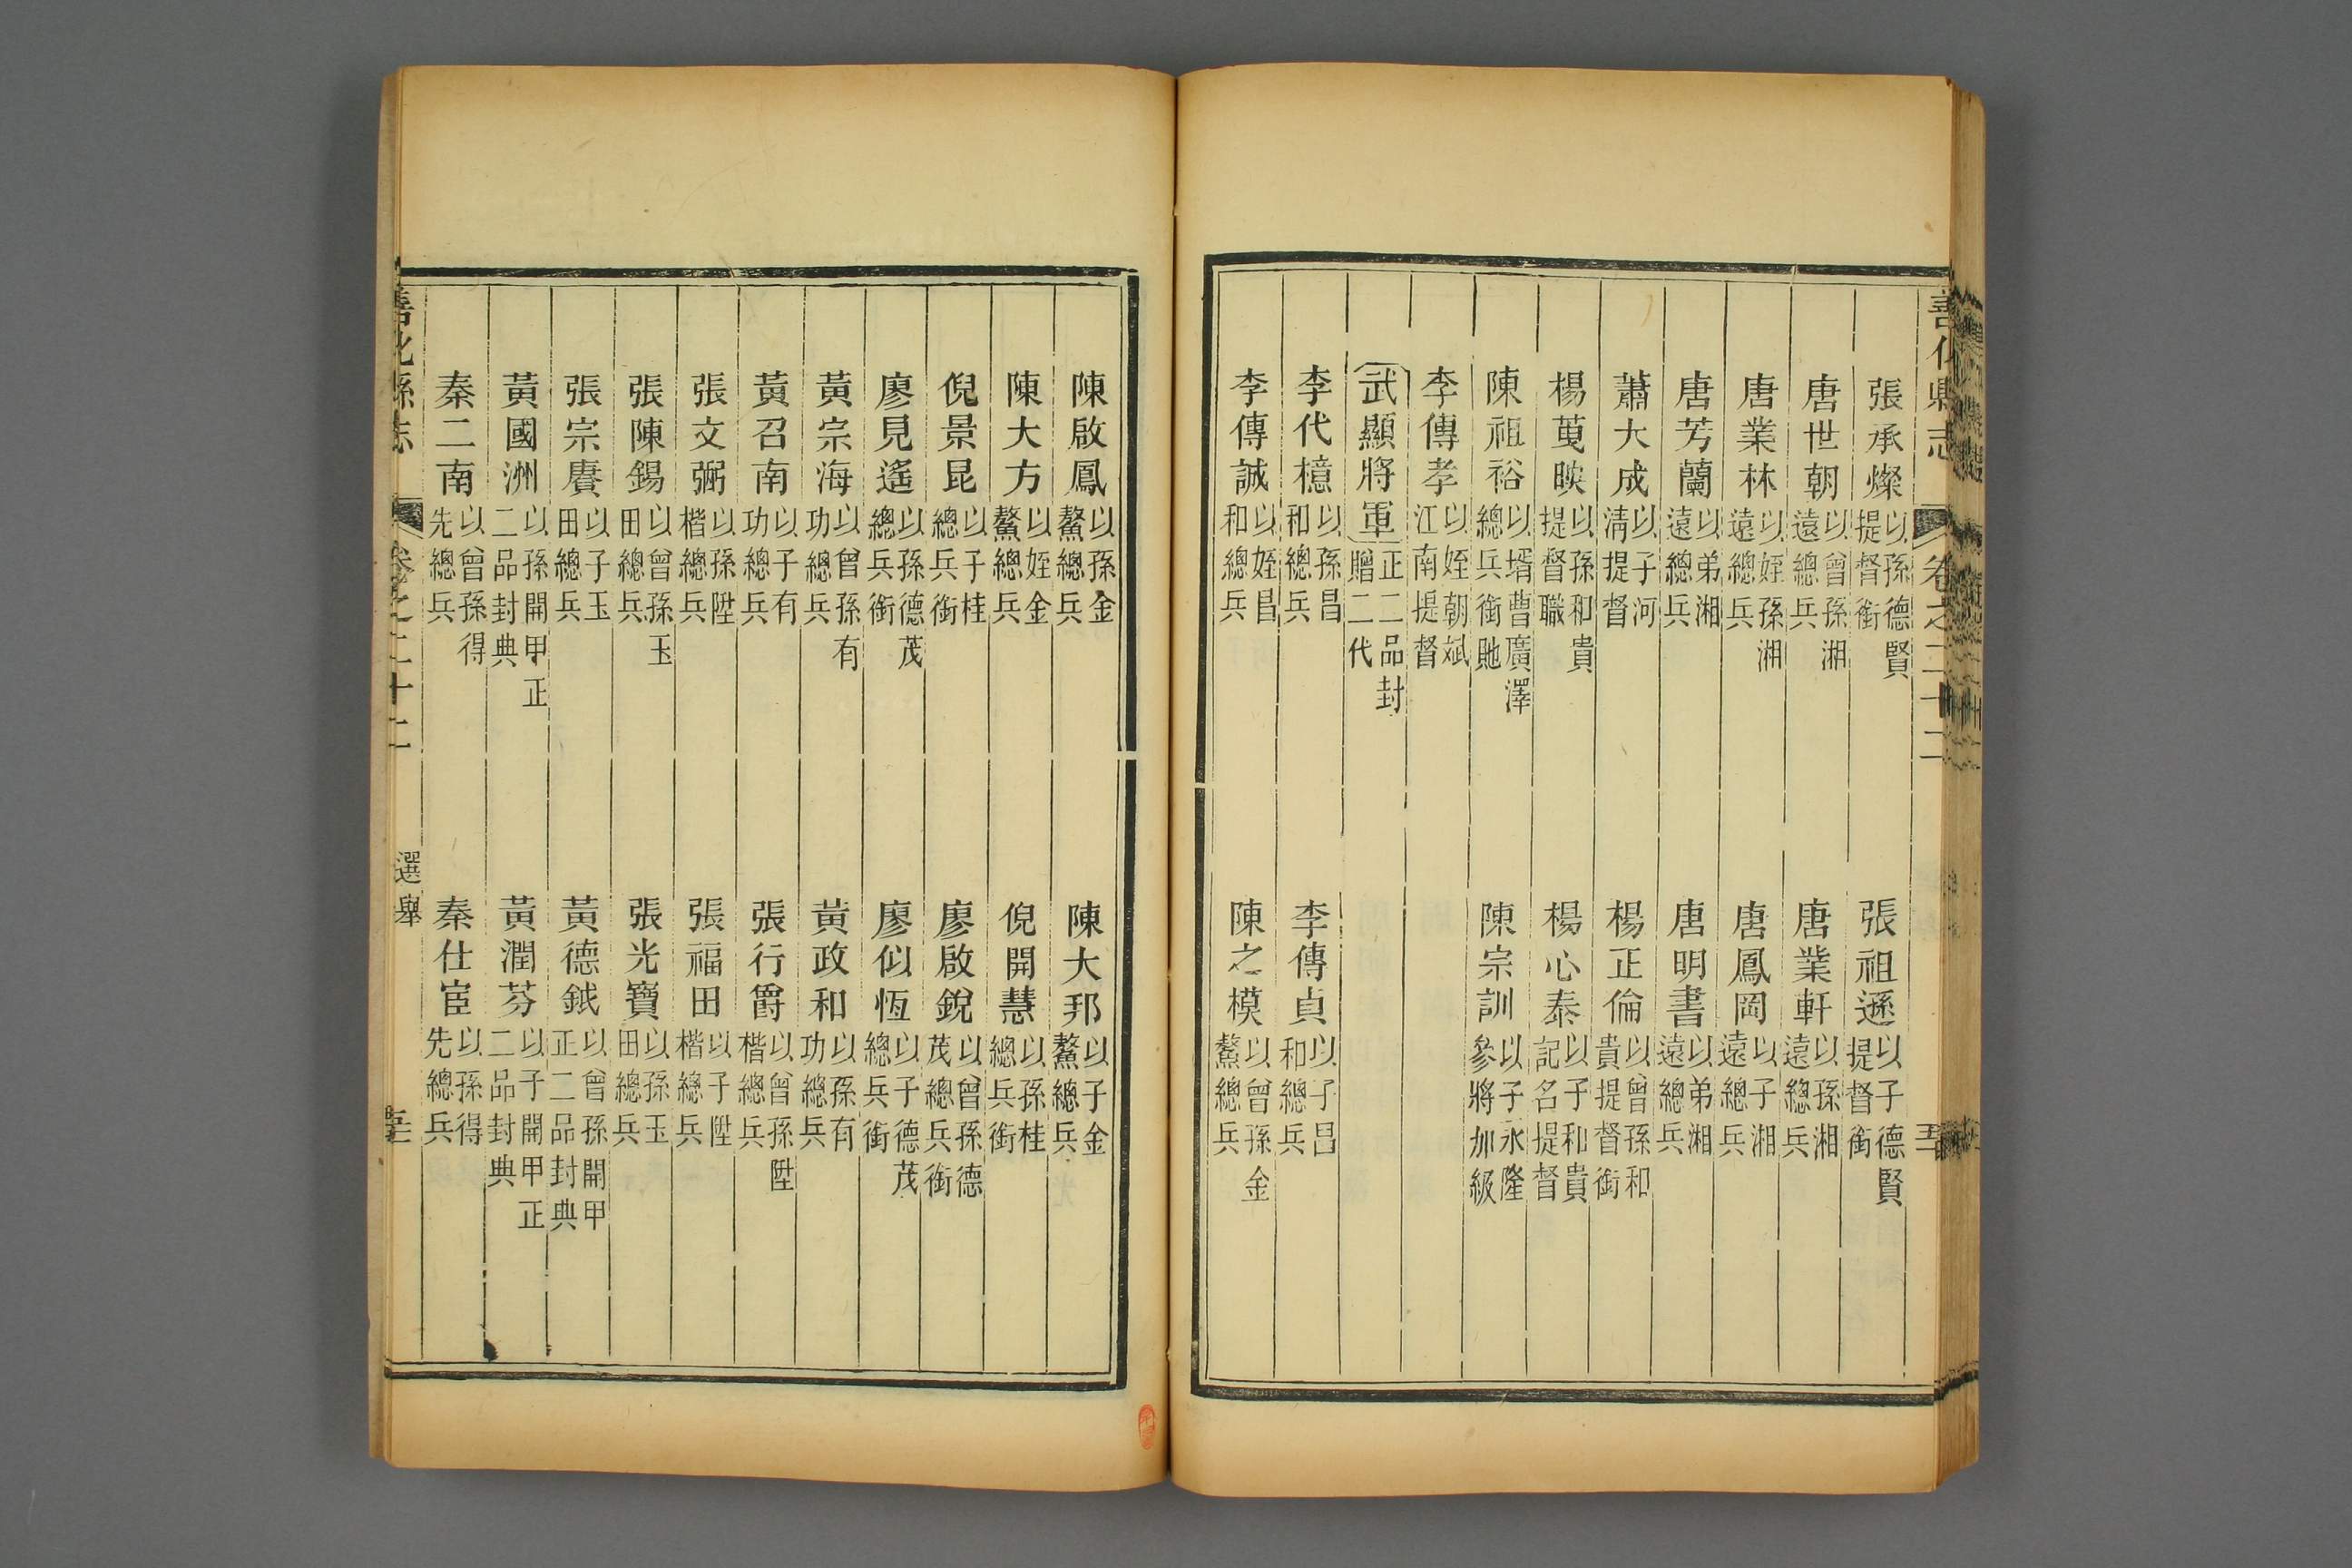 善化縣志 卷之二十二
張承燦 以孫德賢提督銜 張祖遜 以子德賢提督銜
唐世朝 以曾孫湘遠總兵 唐業軒 以孫湘遠總兵
唐業林 以姪孫湘遠總兵 唐鳳岡 以子湘遠總兵
唐芳蘭 以弟湘遠總兵 唐明書 以弟湘遠總兵
蕭大成 以子河清提督 楊正倫 以曾孫和貴提督銜
楊映 以孫和貴提督職 楊心泰 以子和貴記名提督
陳祖裕 以壻曹廣澤總兵銜貤 陳宗訓 以子永隆參將加級
李傳孝 以姪朝斌江南提督
武顯將軍 正二品封贈二代
李代檍 以孫昌和總兵 李傳貞 以子昌和總兵
李傳誠 以姪昌和總兵 陳之模 以曾孫金鰲總兵
陳啟鳳 以孫金鰲總兵 陳大邦 以子金鰲總兵
陳大方 以姪金鰲總兵 倪開慧 以孫桂總兵銜
倪景昆 以子桂總兵銜 廖啟銳 以曾孫德茂總兵銜
廖見遙 以孫德茂總兵銜 廖似恆 以子德茂總兵銜
黃宗海 以曾孫有功總兵 黃政和 以孫有功總兵
黃召南 以子有功總兵 張行爵 以曾孫陞楷總兵
張文弼 以孫陞楷總兵 張福田 以子陞楷總兵
張陳錫 以曾孫玉田總兵 張光寶 以孫玉田總兵
張宗賡 以子玉田總兵 黃德鉞 以曾孫開甲正二品封典
黃國洲 以孫開甲正二品封典 黃潤芬 以子開甲正二品封典
秦二南 以曾孫得先總兵 秦仕宦 以孫得先總兵
善化縣志 卷之二十二 選舉